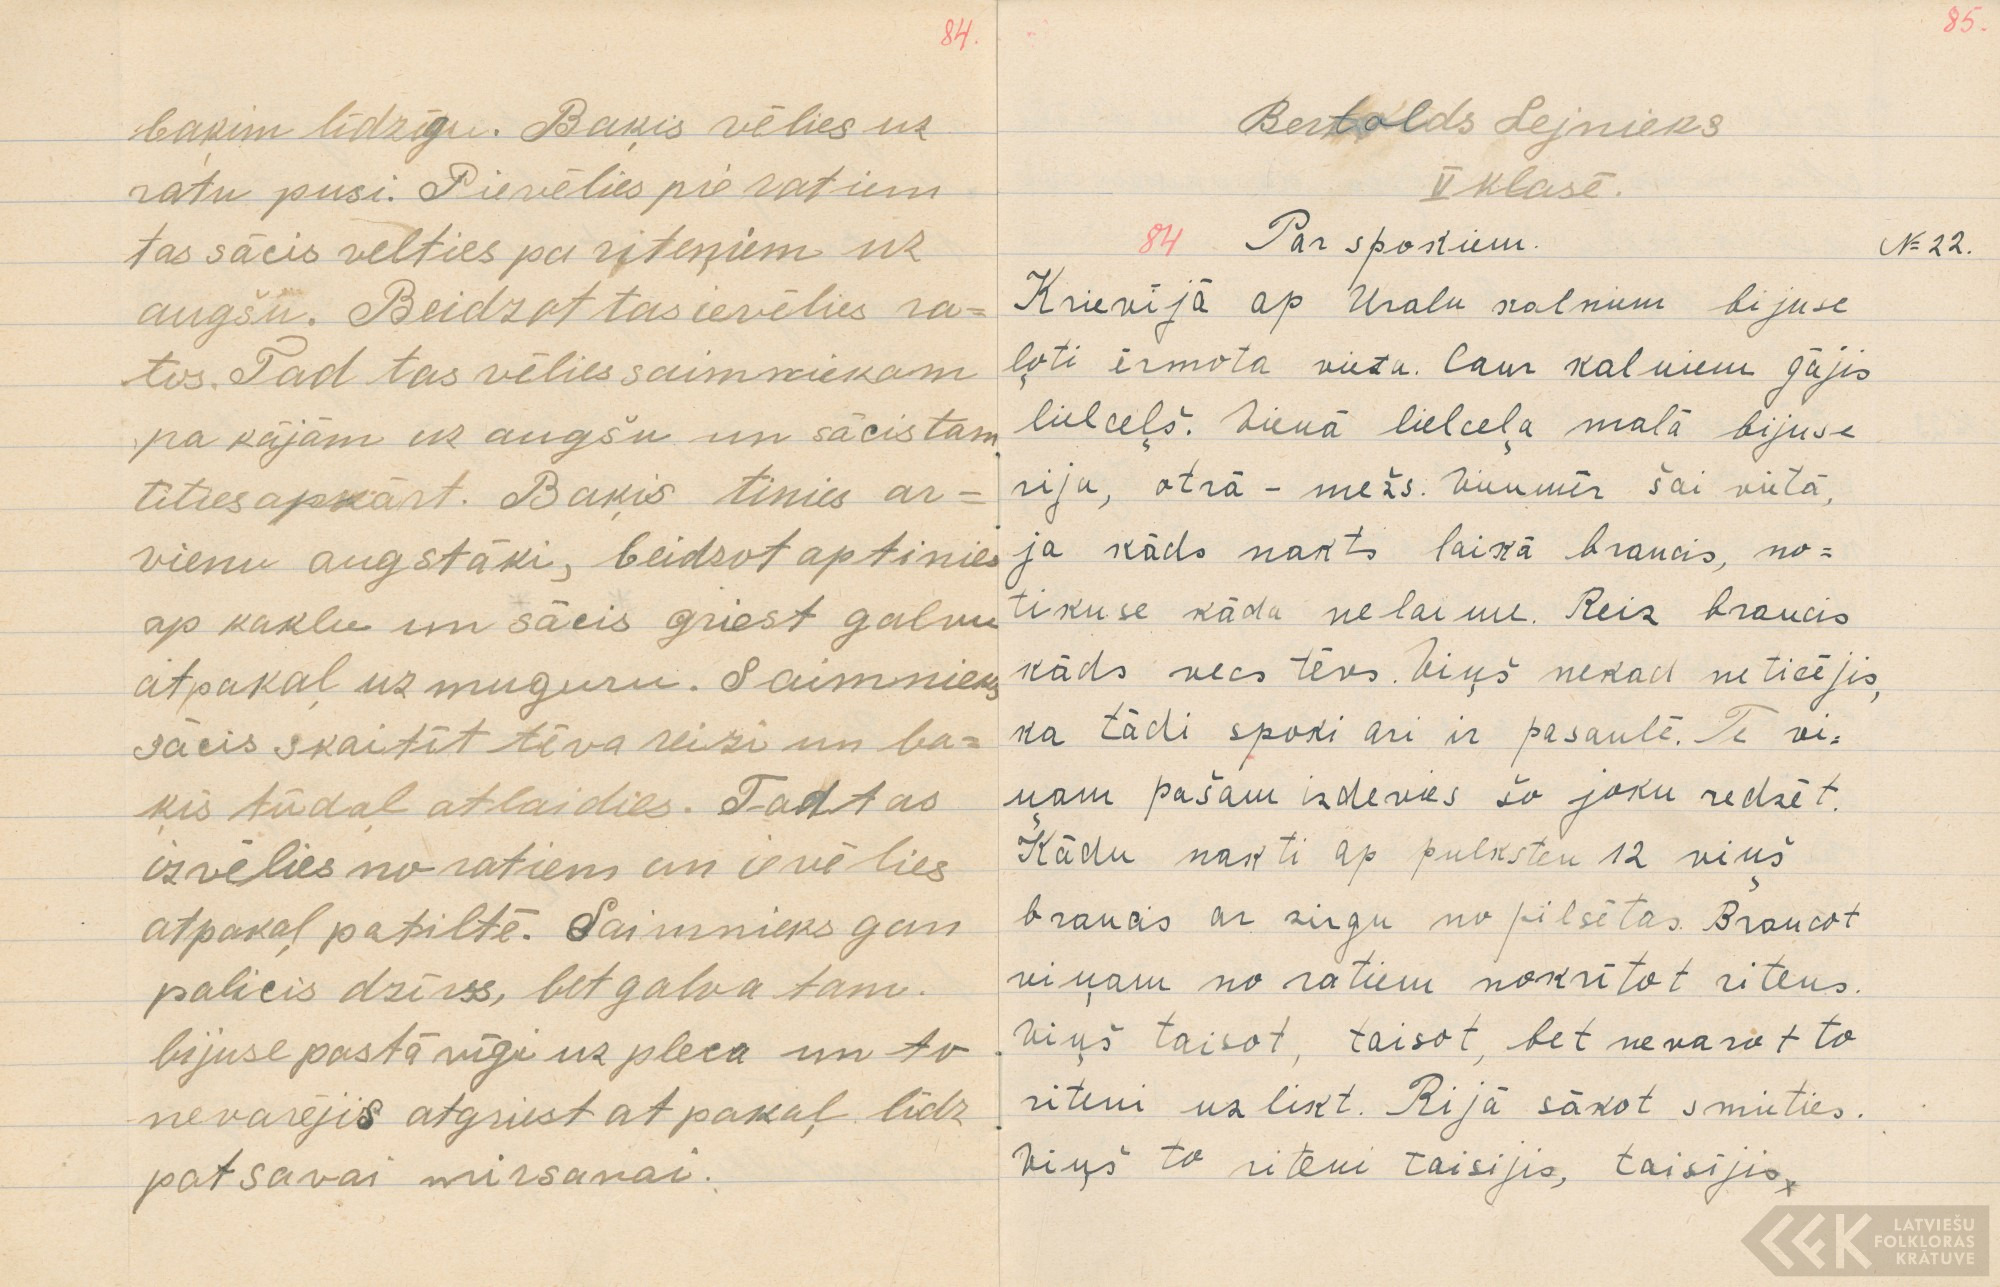 84.
baķim līdzīgu. Baķis vēlies uz
ratu pusi. Pievēlies pie ratiem
tas sācis velties pa riteņiem uz
augšu. Beidzot tas ievēlies ra=
tos. Tad tas vēlies saimniekam
pa kājām uz augšu un sācis tam
tīties apkārt. Baķis tinies ar=
vienu augstāki, beidzot aptinies
ap kaklu un sācis griest galvu
atpakaļ uz muguru. Saimnieks
sācis skaitīt tēva reizi un ba=
ķis tūdaļ atlaidies. Tad tas
izvēlies no ratiem un ievēlies
atpakaļ patiltē. Saimnieks gan
palicis dzīvs, bet galva tam
bijuse pastāvīgi uz pleca un to
nevarējis atgriest atpakaļ līdz
pat savai mirsanai.
85.
Bertolds Lejnieks
V klasē.
84 Par spokiem. № 22.
Krievijā ap Uralu kalniem bijuse
ļoti ērmota vieta. Caur kalniem gājis
lielceļš. Vienā lielceļa malā bijuse
rija, otrā - mežs. Vienmēr šai vietā,
ja kāds nakts laikā braucis, no=
tikuse kāda nelaime. Reiz braucis
kāds vecs tēvs. Viņš nekad neticējis,
ka tādi spoki ari ir pasaulē. Te vi=
ņam pašam izdevies šo joku redzēt.
Kādu nakti ap pulksten 12 viņš
braucis ar zirgu no pilsētas. Braucot
viņam no ratiem nokrītot ritens.
Viņš taisot, taisot, bet nevarot to
riteni uzlikt. Rijā sākot smieties.
Viņš to riteni taisijis, taisījis,
LATVIEŠU
FOLKLORAS
KRĀTUVE